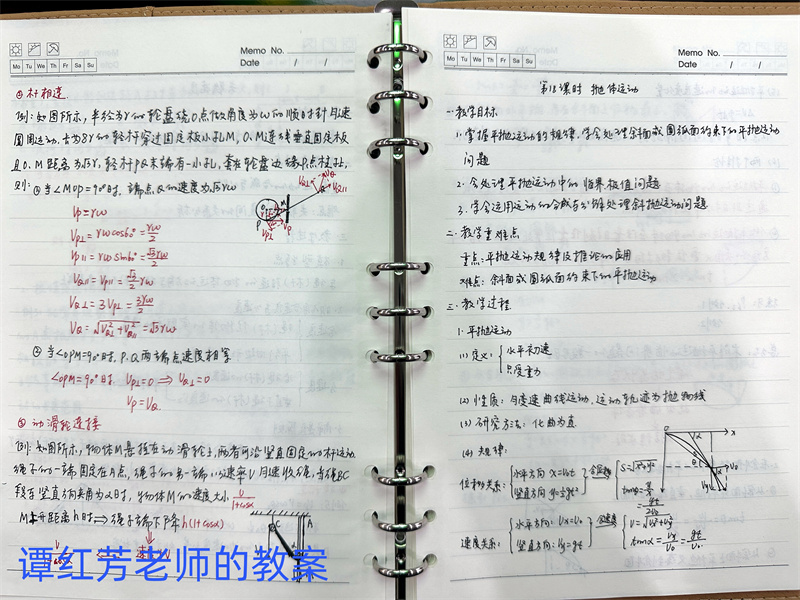 Memo No.
Mo Tu We Th Fr Sa Su
Date / /
④ 杆相连
例:如图所示,半径为r的轮盘绕O点以角度为ω的顺时针匀速
圆周运动,长为8r的轻杆穿过固定板小孔M,O、M连线垂直固定板
且O、M距离为√3r,轻杆PQ末端有一小孔,套在轮盘边缘P点柱孔,
则:① 当∠MOP=90°时,端点Q的速度为√3rω
Vp=rω
Vp⊥=rωcos60°=rω/2
Vp∥=rωsin60°=√3rω/2
VQ∥=Vp∥=√3/2 rω
VQ⊥=3Vp⊥=3rω/2
VQ=√(VQ⊥²+VQ∥²)=√3rω
② 当∠OPM=90°时,P、Q两端点速度相等
∠OPM=90°时,Vp⊥=0⇒VQ⊥=0
Vp=VQ
⑤ 动滑轮连接
例:如图所示,物体M悬挂在动滑轮上,两者可沿竖直固定的杆运动
绳子的一端固定在A点,绳子的另一端以速率V匀速收绳,当绳BC
段与竖直方向夹角为α时,物体M的速度大小 V/(1+cosα)
M上升距离h时⇒绳子端下降h(1+cosα)
谭红芳老师的教案
Memo No.
Mo Tu We Th Fr Sa Su
Date / /
第18课时 抛体运动
一.教学目标
1.掌握平抛运动的规律,学会处理斜面或圆弧面约束下的平抛运动
问题
2.会处理平抛运动中的临界极值问题
3.学会运用运动的合成与分解处理斜抛运动问题
二.教学重难点
重点:平抛运动规律及推论的应用
难点:斜面或圆弧面约束下的平抛运动
三.教学过程
1.平抛运动
(1)定义:{水平初速
只受重力
(2)性质:匀变速曲线运动,运动轨迹为抛物线
(3)研究方法:化曲为直
(4)规律:
位移关系:{水平方向 x=V₀t
竖直方向 y=½gt²} 合位移 {S=√(x²+y²)
tanφ=y/x
=gt/2V₀
速度关系:{水平方向:Vx=V₀
竖直方向:Vy=gt} 合速度 {V=√(Vx²+Vy²)
tanα=Vy/V₀=gt/V₀